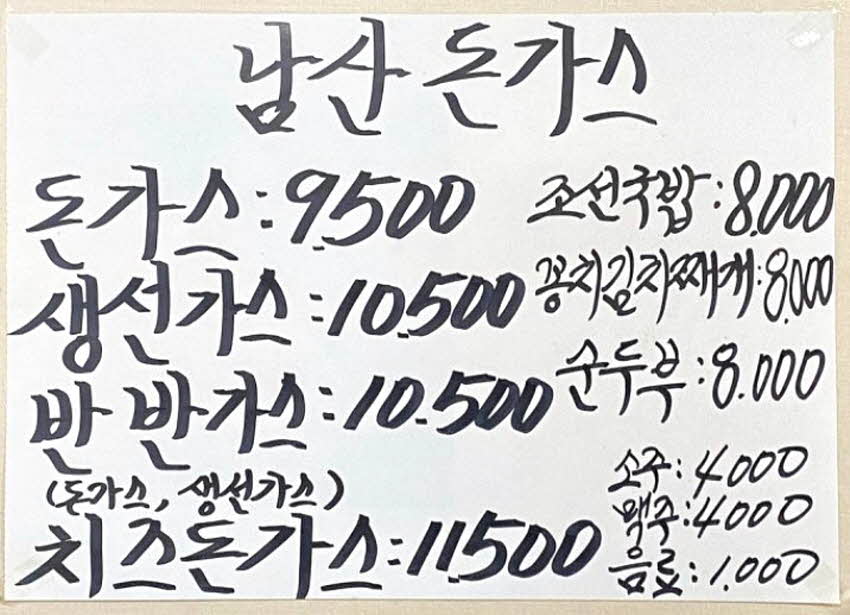 남산 돈가스
돈가스:9.500
생선가스:10.500
반반가스:10.500
(돈가스, 생선가스)
치즈돈가스:11.500
조선국밥:8.000
꽁치김치찌개:8.000
순두부:8.000
소주:4000
맥주:4000
음료:1.000